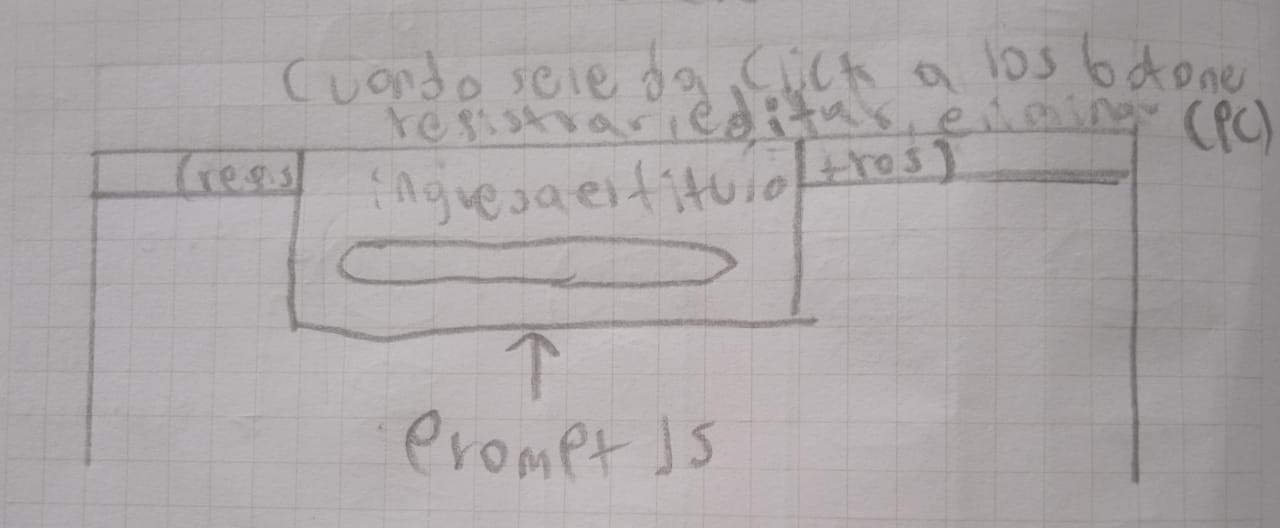 Cuando sele da Click a los botone
registrar, editar, eliminar (PC)
(regis tros)
ingresa el titulo
Prompt JS